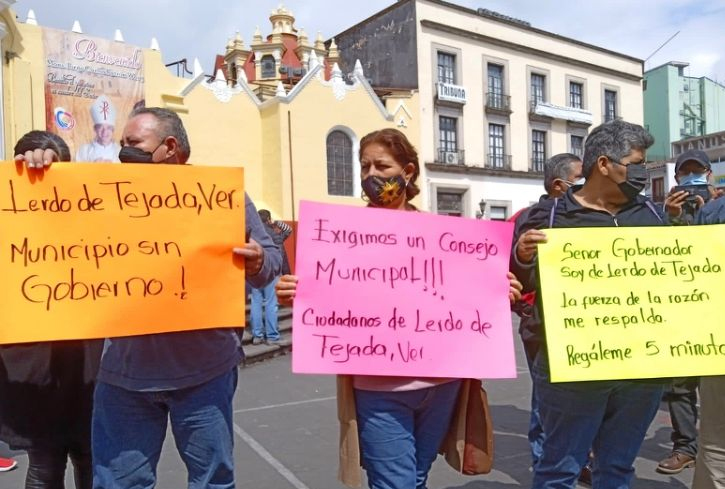 Bienvenido
TRIBUNA
Lerdo de Tejada, Ver.
Municipio sin
Gobierno!
Exigimos un Consejo
Municipal!!!
Ciudadanos de Lerdo de
Tejada, Ver.
Señor Gobernador
Soy de Lerdo de Tejada
La fuerza de la razón
me respalda.
Regáleme 5 minuto